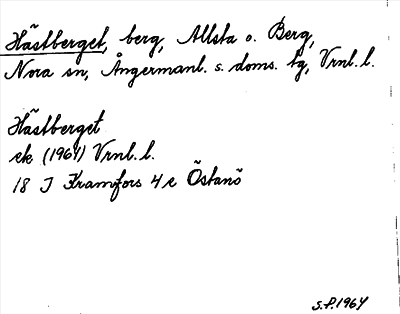 Hästberget, berg, Allsta o. Berg,
Nora sn, Ångermanl. s. doms. tg, Vrnl. l.
Hästberget
ek (1964) Vrnl. l.
18 J Kramfors 4 c Östanö
S.P. 1964